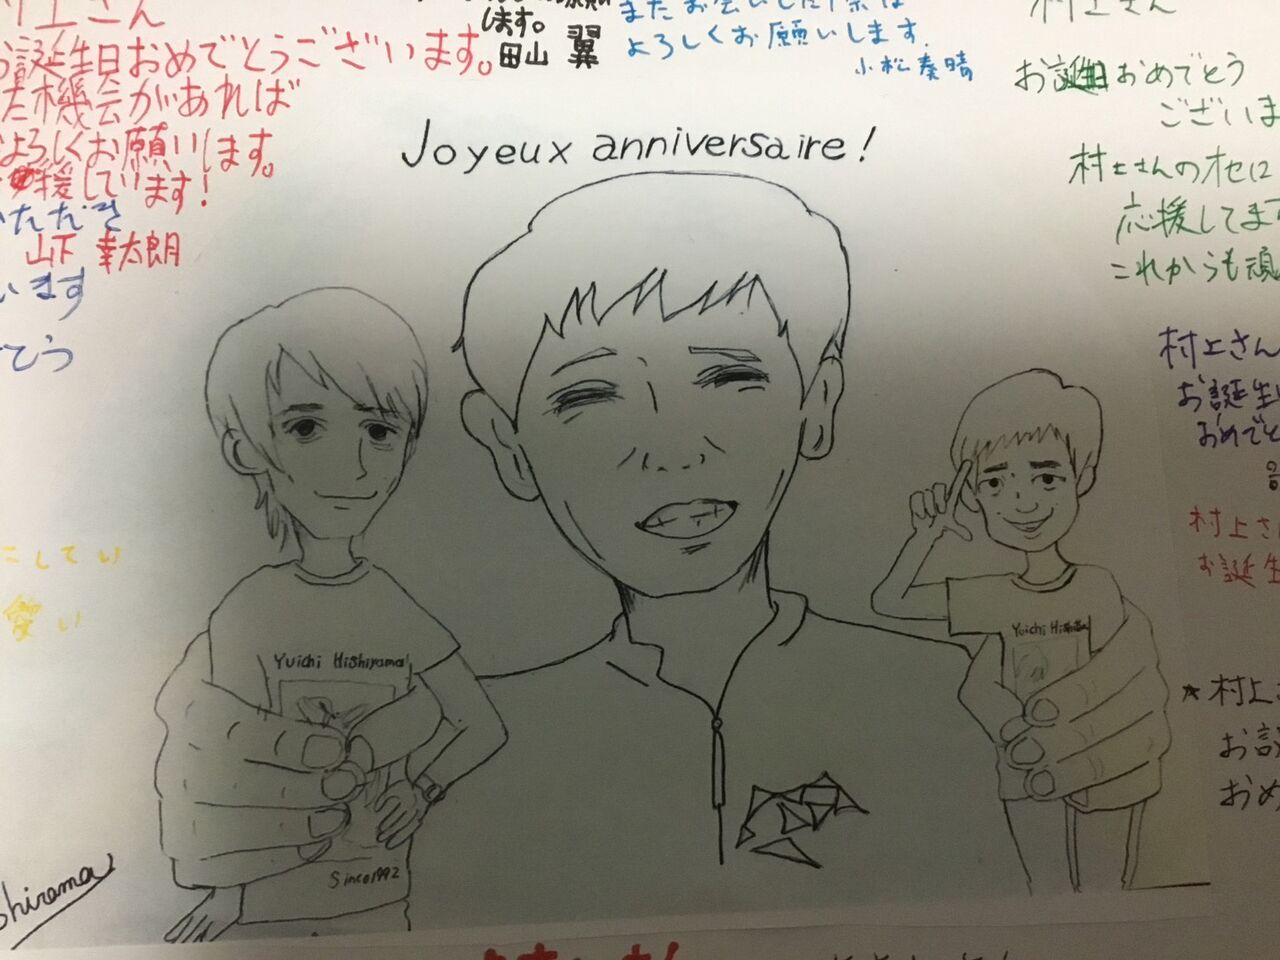 お誕生日おめでとうございます。
た機会があれば
よろしくお願いします。
援しています！
いただき
山下 幸太朗
います
てう
こしてい
愛い
します。
田山 翼
またお会いした際は
よろしくお願いします。
小松 奏晴
Joyeux anniversaire!
村上さん
お誕生日おめでとう
ございま
村上さんのオセロ
応援してます
これからも頑
村上さん
お誕生
おめでと
村上さ
お誕生
★村上
お誕
おめ
Yuichi Hishiyama
Since1992
Yuichi